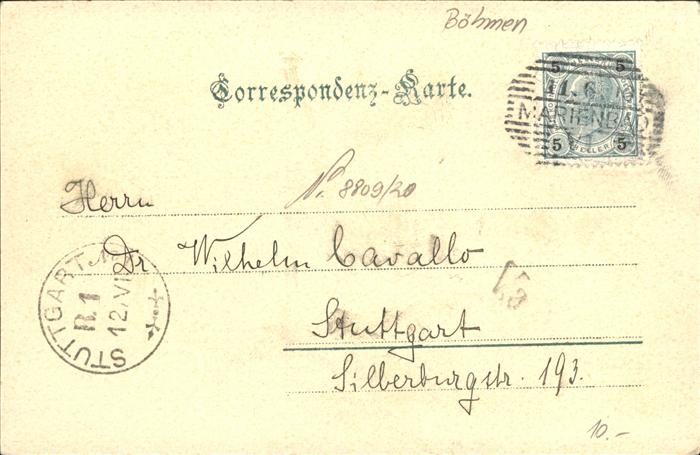 Böhmen
Correspondenz-Karte.
5 5
11. 6.
MARIENBAD
5 HELLER 5
N. 8809/20
Herrn
Dr. Wilhelm Cavallo
STUTTGART
B.1
12/VI
Stuttgart
Silberburgstr. 193.
10.-